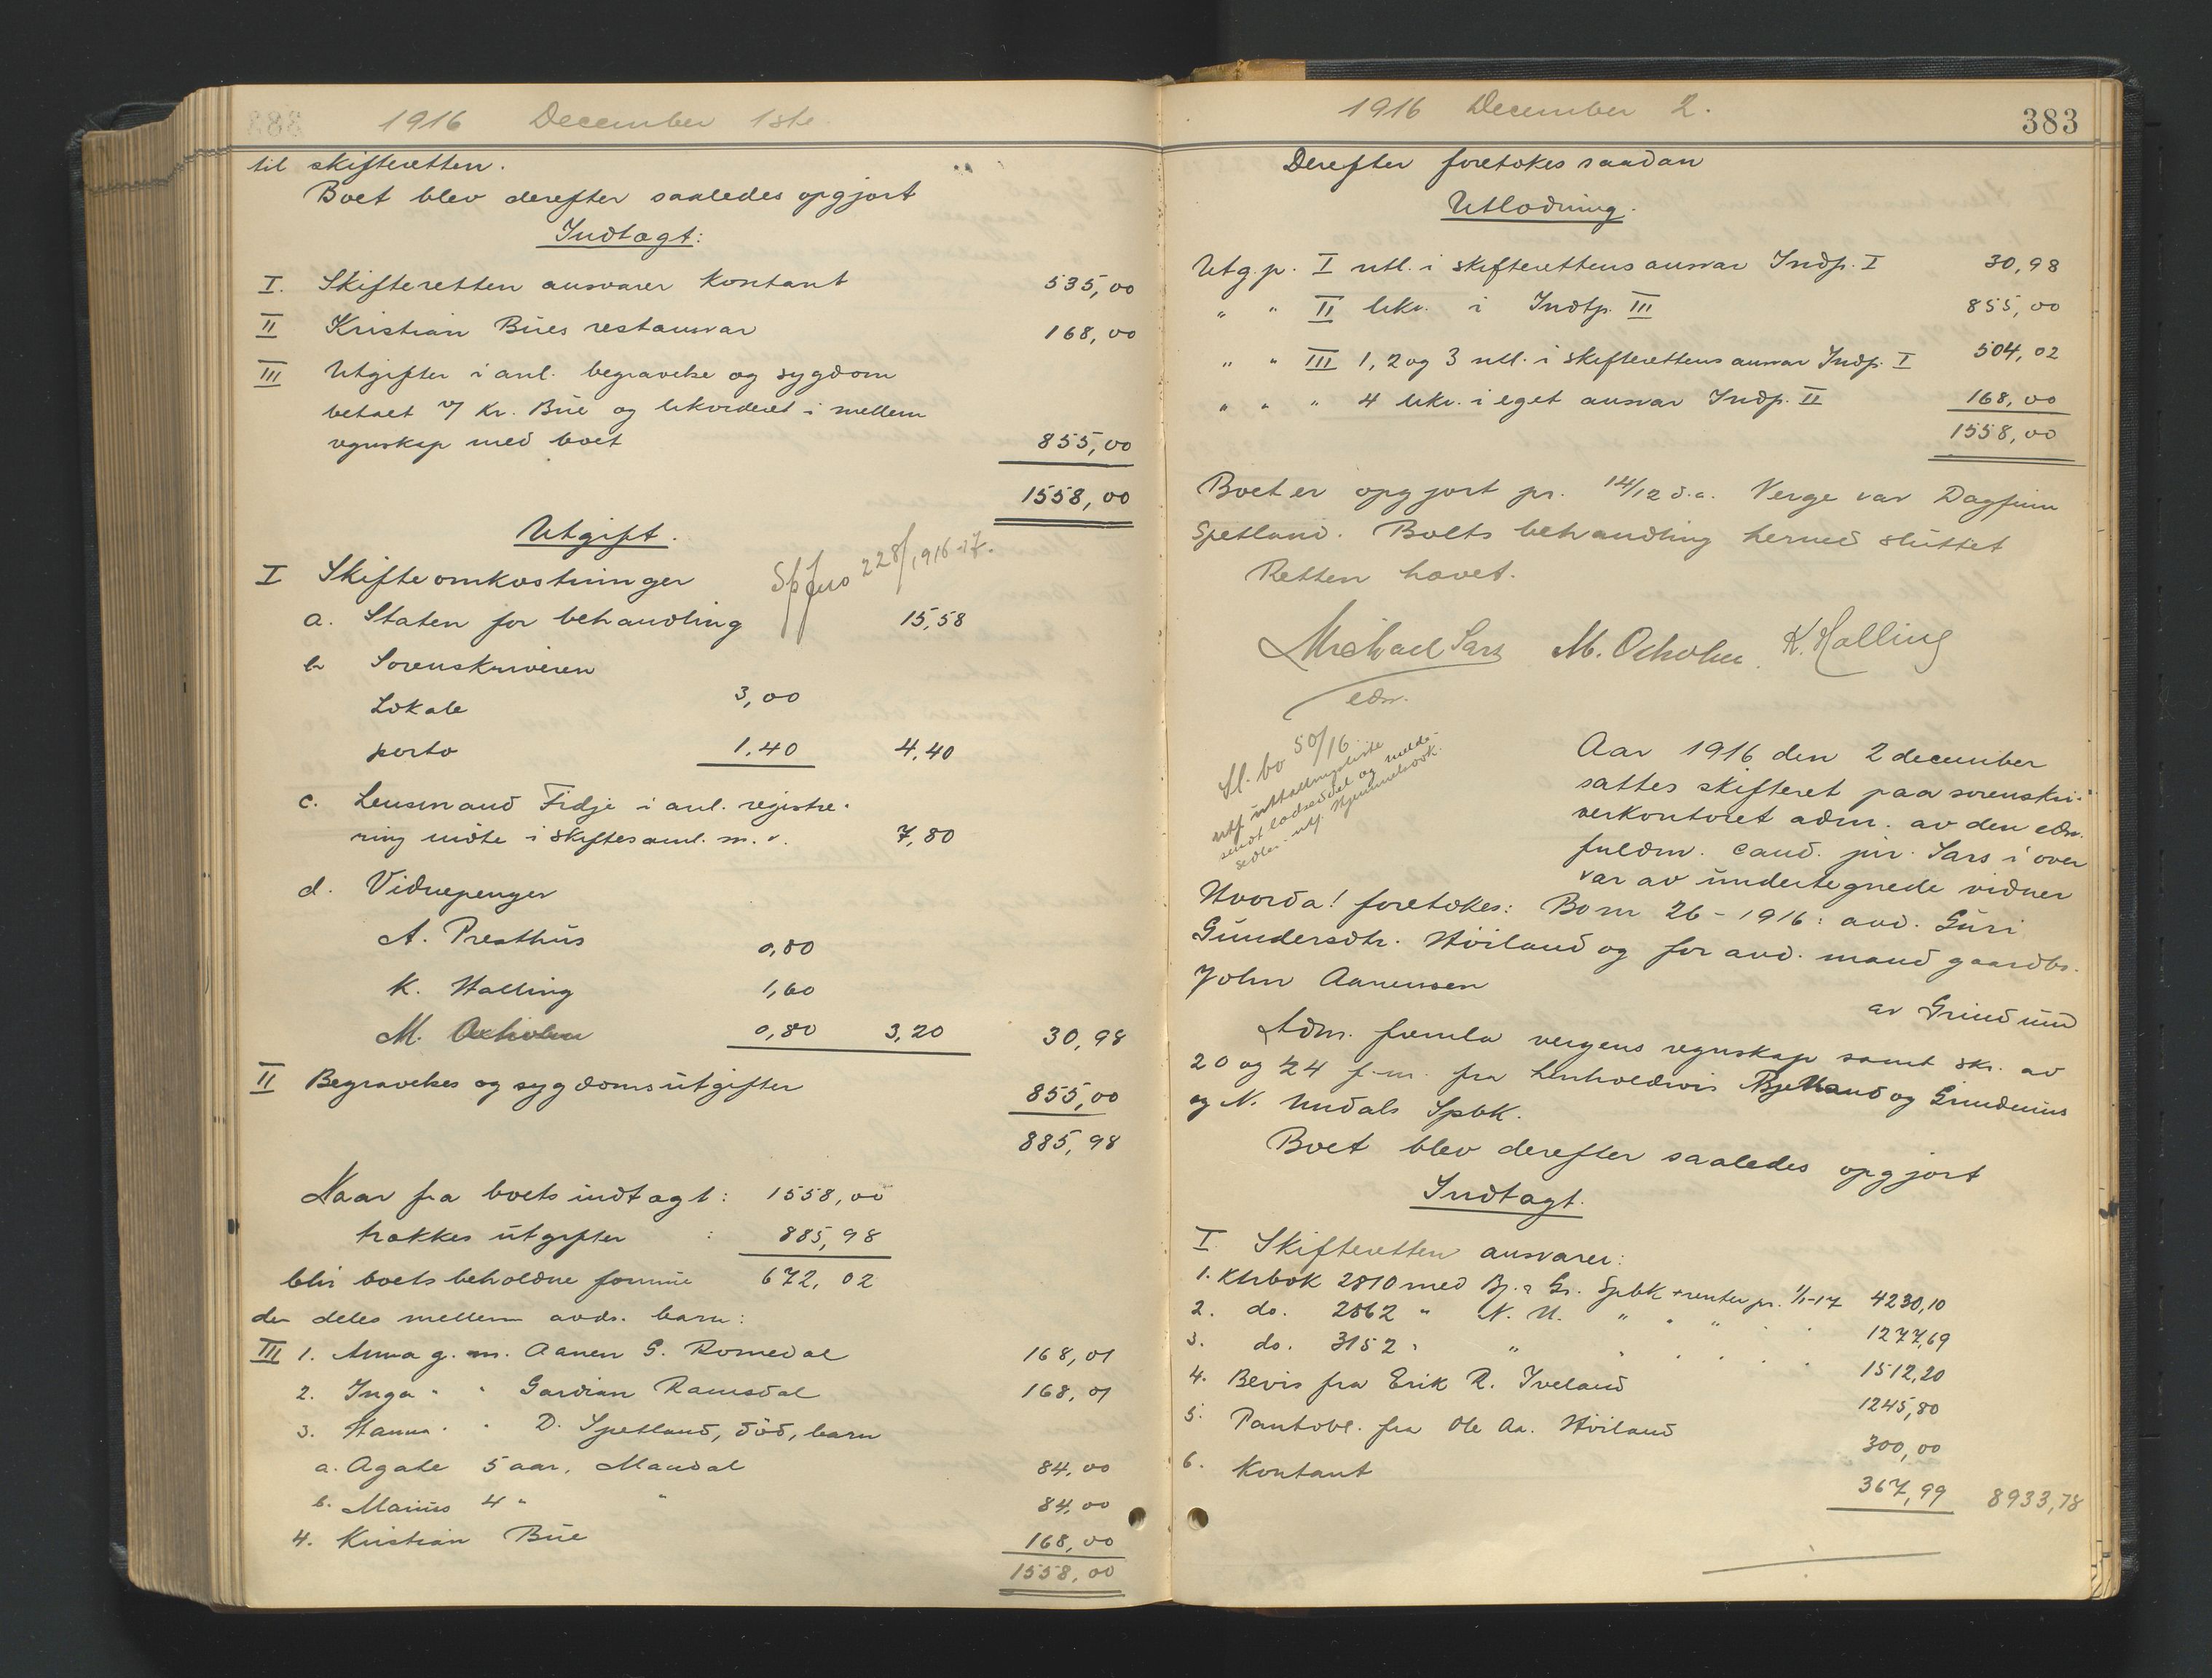 1916 December 1ste.
til skifteretten.
Boet blev derefter saaledes opgjort
Indtægt:
I. Skifteretten ansvarer kontant 535,00
II Kristian Bües restansvar 168,00
III Utgifter i anl. begravelse og sygdom
betalt v/ Kr. Büe og likvideret i mellem
regnskap med boet 855,00
1558,00
Utgift.
I Skifteomkostninger
228/1916-17.
a. Staten for behandling 15,58
b Sorenskriveren
Lokale 3,00
porto 1.40 4,40
c. Lensmand Fidje i anl. registre-
ring møte i skiftesaml. m. v. 7,80
d. Vidnepenger
A. Presthüs 0,80
K. Halling 1,60
M. Oxholm 0,80 3,20 30,98
II Begravelses og sygdomsütgifter 855,00
885,98
Naar fra boets indtægt: 1558,00
trækkes ütgifter : 885,98
blir boets beholdne formue 672,02
der deles mellem avds. barn:
III 1. Anna g. m. Aanen G. Romedal 168,01
2. Inga " " Gardian Ramsdal 168,01
3. Hanna " " D. Spetland, død, barn
a. Agate 5 aar, Mandal 84,00
b. Marius 4 " " 84,00
4. Kristian Büe 168,00
1558,00
1916 December 2.
383
Derefter foretokes saadan
Utlodning.
Utg.p. I utl. i skifterettens ansvar Indp. I 30,98
" " II likv. i Indtp. III 855,00
" " III 1, 2 og 3 utl. i skifterettens ansvar Indp. I 504,02
" " " 4 likv. i eget ansvar Indp. II 168,00
1558,00
Boet er opgjort pr. 14/12 d.a. Verge var Dagfinn
Spetland. Boets behandling hermed sluttet
Retten hævet.
Michael Sars M. Oxholm. K. Halling
edsv.
Sl. bo 50/16.
Aar 1916 den 2 december
sattes skifteret paa sorenskri-
verkontoret adm. av den edsv.
fuldm. cand. jur. Sars i over
vær av undertegnede vidner
Hvorda! foretokes: Bo nr 26 - 1916: avd. Güri
Gundersdtr. Høiland og før avd. mand gaardbr.
John Aanensen
av Grindum
Adm. fremla vergens regnskap samt skr. av
20 og 24 f.m. fra henholdsvis Bjelland og Grindums
og N. Undals Spbk.
Boet blev derefter saaledes opgjort
Indtægt.
I Skifteretten ansvarer:
1. Ktrbok 2810 med Bj. & Gr. Spbk + renter pr. 1/1-17 4230,10
2. do. 2862 " N. U. " " " " " 1277,69
3. do. 3152 " " " " " " " 1512,20
4. Bevis fra Erik R. Iveland 1245,80
5. Pantobl. fra Ole Aa. Høiland 300,00
6. Kontant 367,99 8933,78